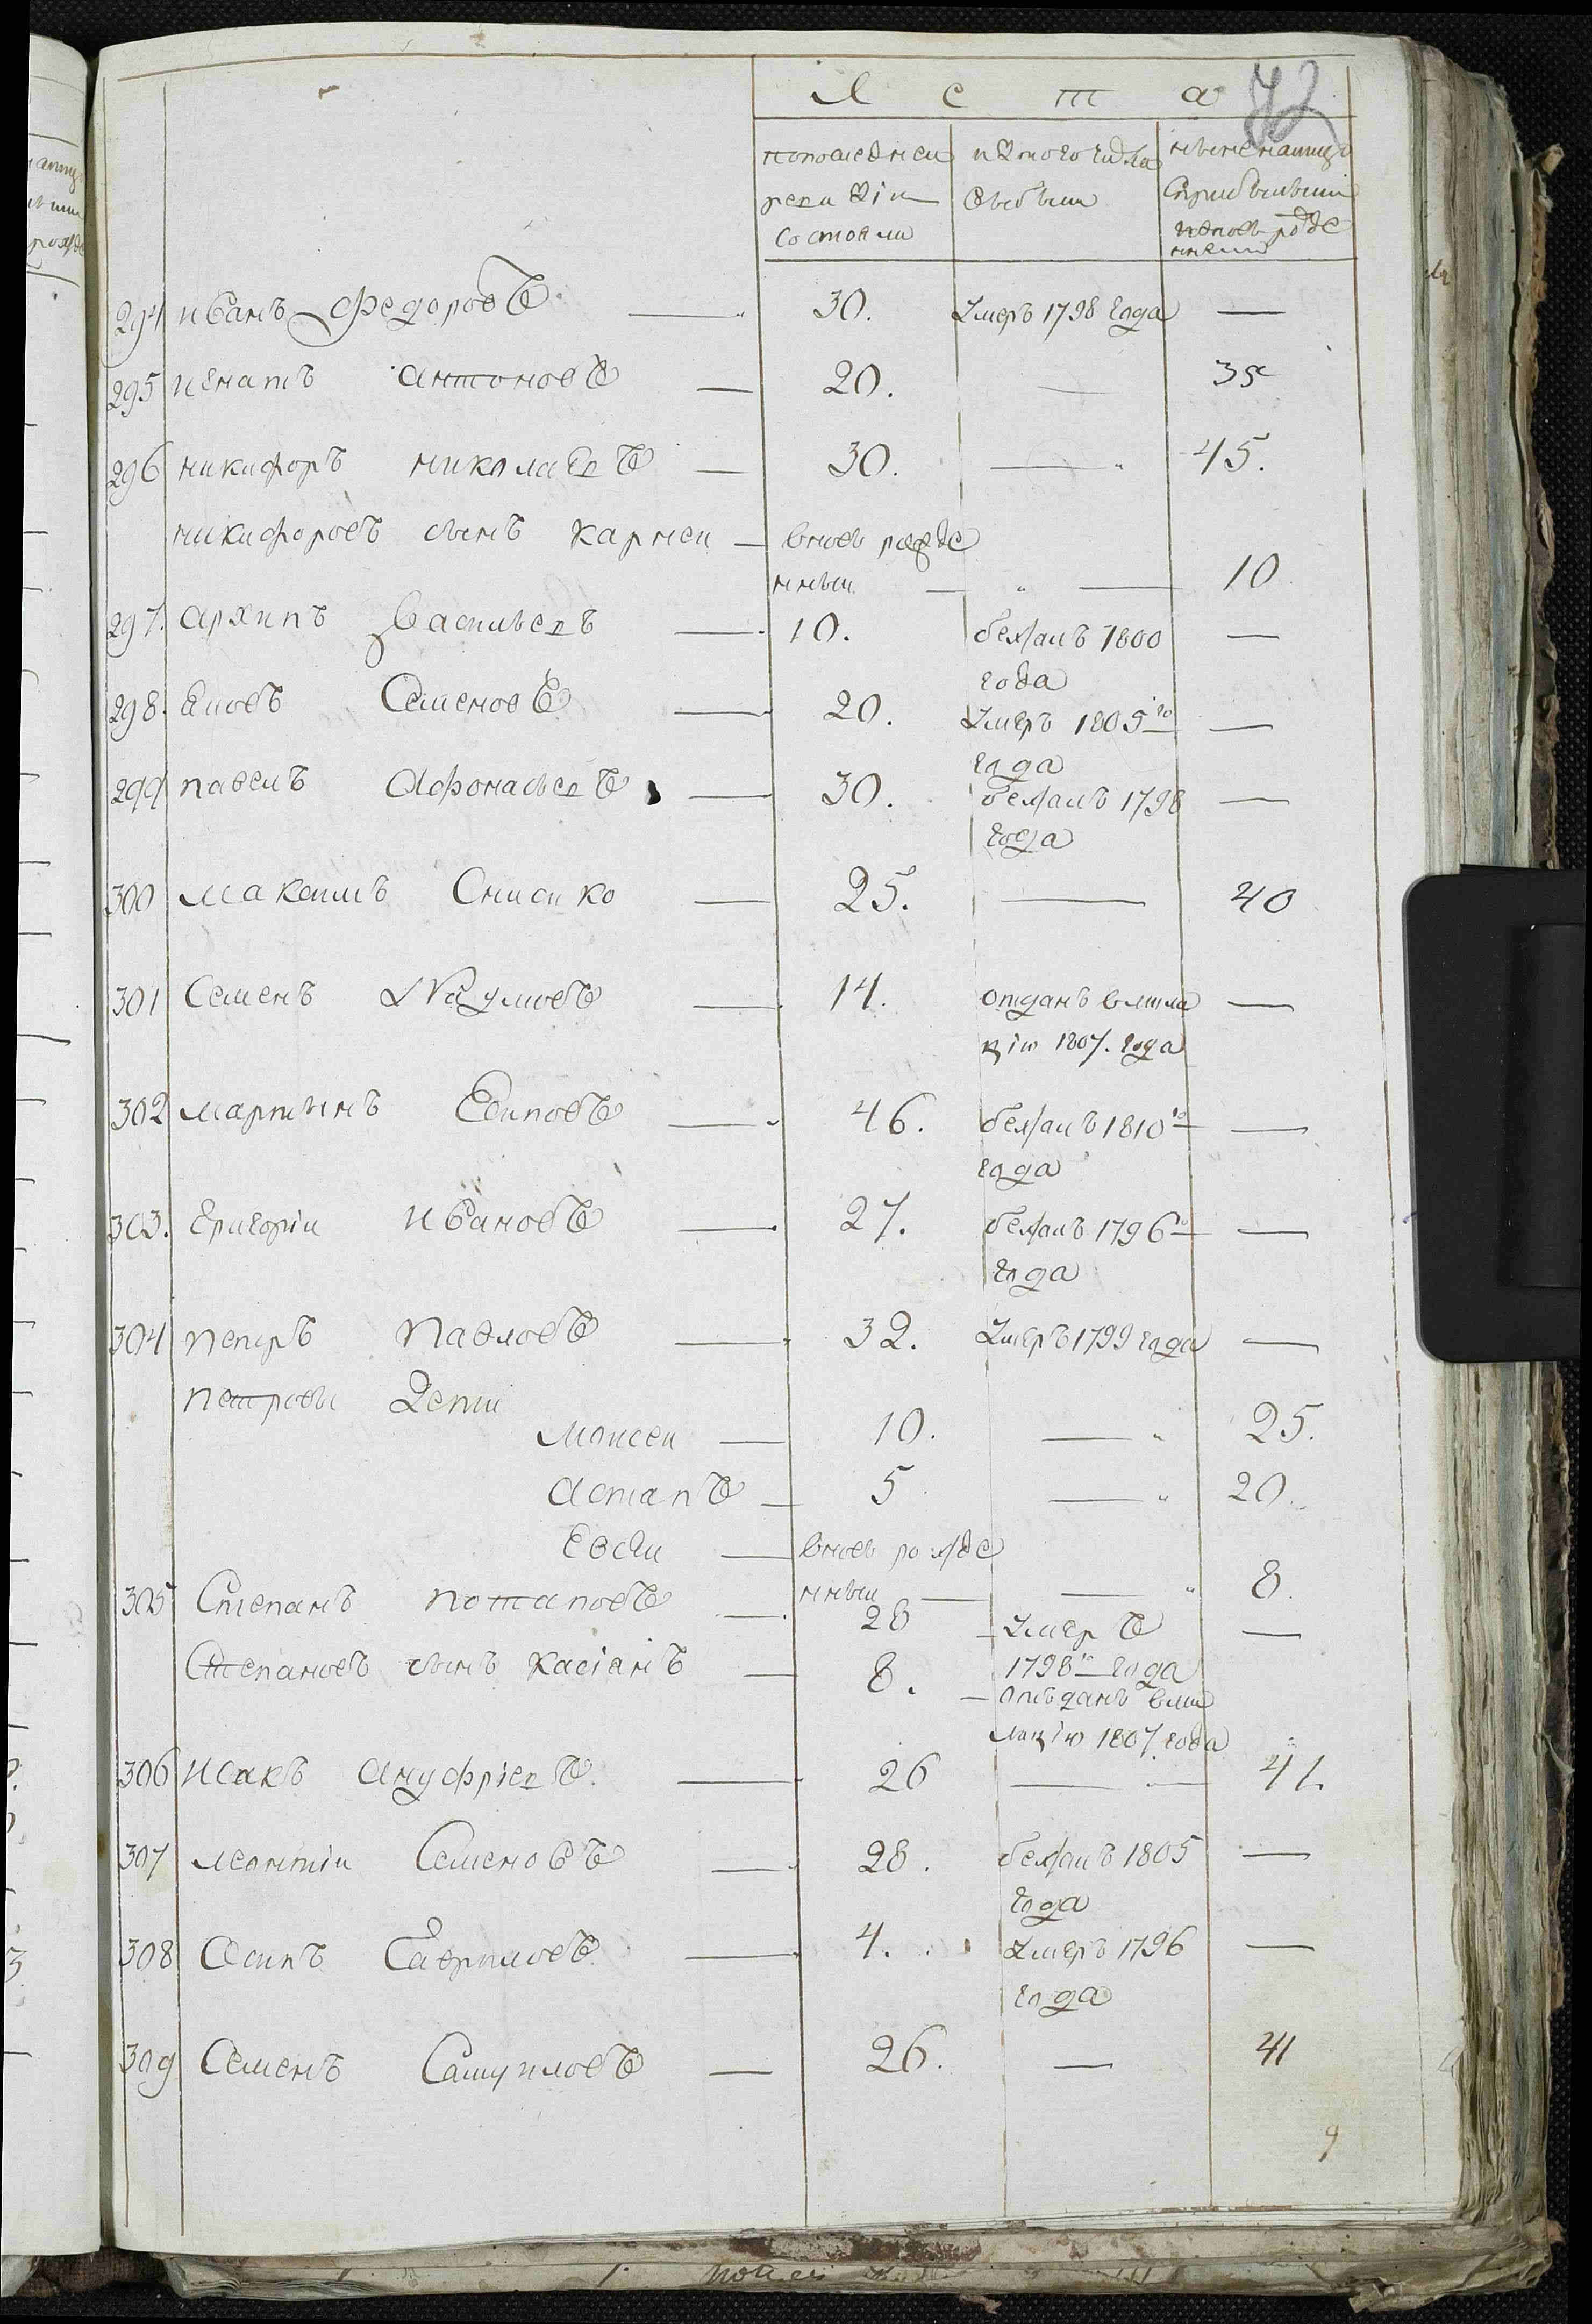 лета 72
попоследней ревизіи состояли
изтого числа выбыли
ныне налицо сприбывшими ивновь рожденными
294 иванъ Федоровъ — 30. Умеръ 1798 года —
295 игнатъ антоновъ — 20. — 35
296 никифоръ николаевъ — 30. — 45.
никифоровъ сынъ Карней — вновь рожде
нный — 10
297. архипъ Васильевъ — 10. бежалъ 1800 —
года
298. Яковъ Семеновъ — 20. Умеръ 1805го —
года
299 павелъ Афонасьевъ — 30. бежалъ 1798 —
года
300 максимъ Снисико — 25. — 40
301 Семенъ Наумовъ — 14. отданъ вмили
цію 1807. года —
302 мартынъ Есиповъ — 46. бежалъ 1810го —
года
303. григорій ивановъ — 27. бежалъ 1796го —
года
304 петръ Павловъ — 32. Умеръ 1799 года —
петровы Дети
Моисей — 10. — 25.
Астапъ — 5 — 20.
Евсей — вновь рожде
нный — 8.
305 Степанъ потаповъ — 28 Умеръ —
1798го года
Степановъ сынъ касіанъ — 8. — отъданъ вми
лицію 1807 года
306 Исакъ Ануфріевъ. — 26 — 41.
307 леонтій Семеновъ — 28. бежалъ 1805 —
года
308 Осипъ Гавриловъ — 4. Умеръ 1796 —
года
309 Семенъ Самуиловъ — 26. — 41
9